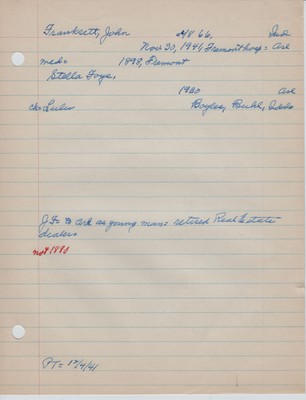 Franksett, John 4/8 66, Ind
Nov 30, 1941 Fremont hosp = Ark
med = 1898, Fremont
Stella Foye,
1920 Ark
ch: Lulu Boyles, Buhl, Idaho
J F = to Ark as young man = retired Real Estate
dealer
not 1880
FT = 12/4/41